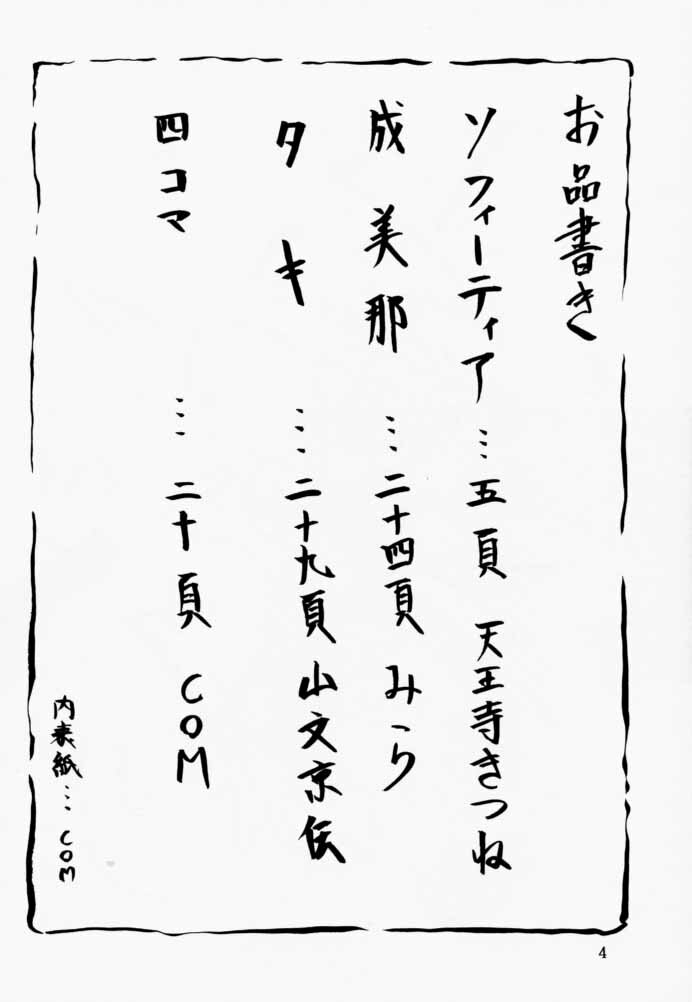 お品書き
ソフィーティア…五頁 天王寺きつね
成美那…二十四頁 みらり
タキ…二十九頁 山文京伝
四コマ…二十頁 COM
内表紙…COM
4